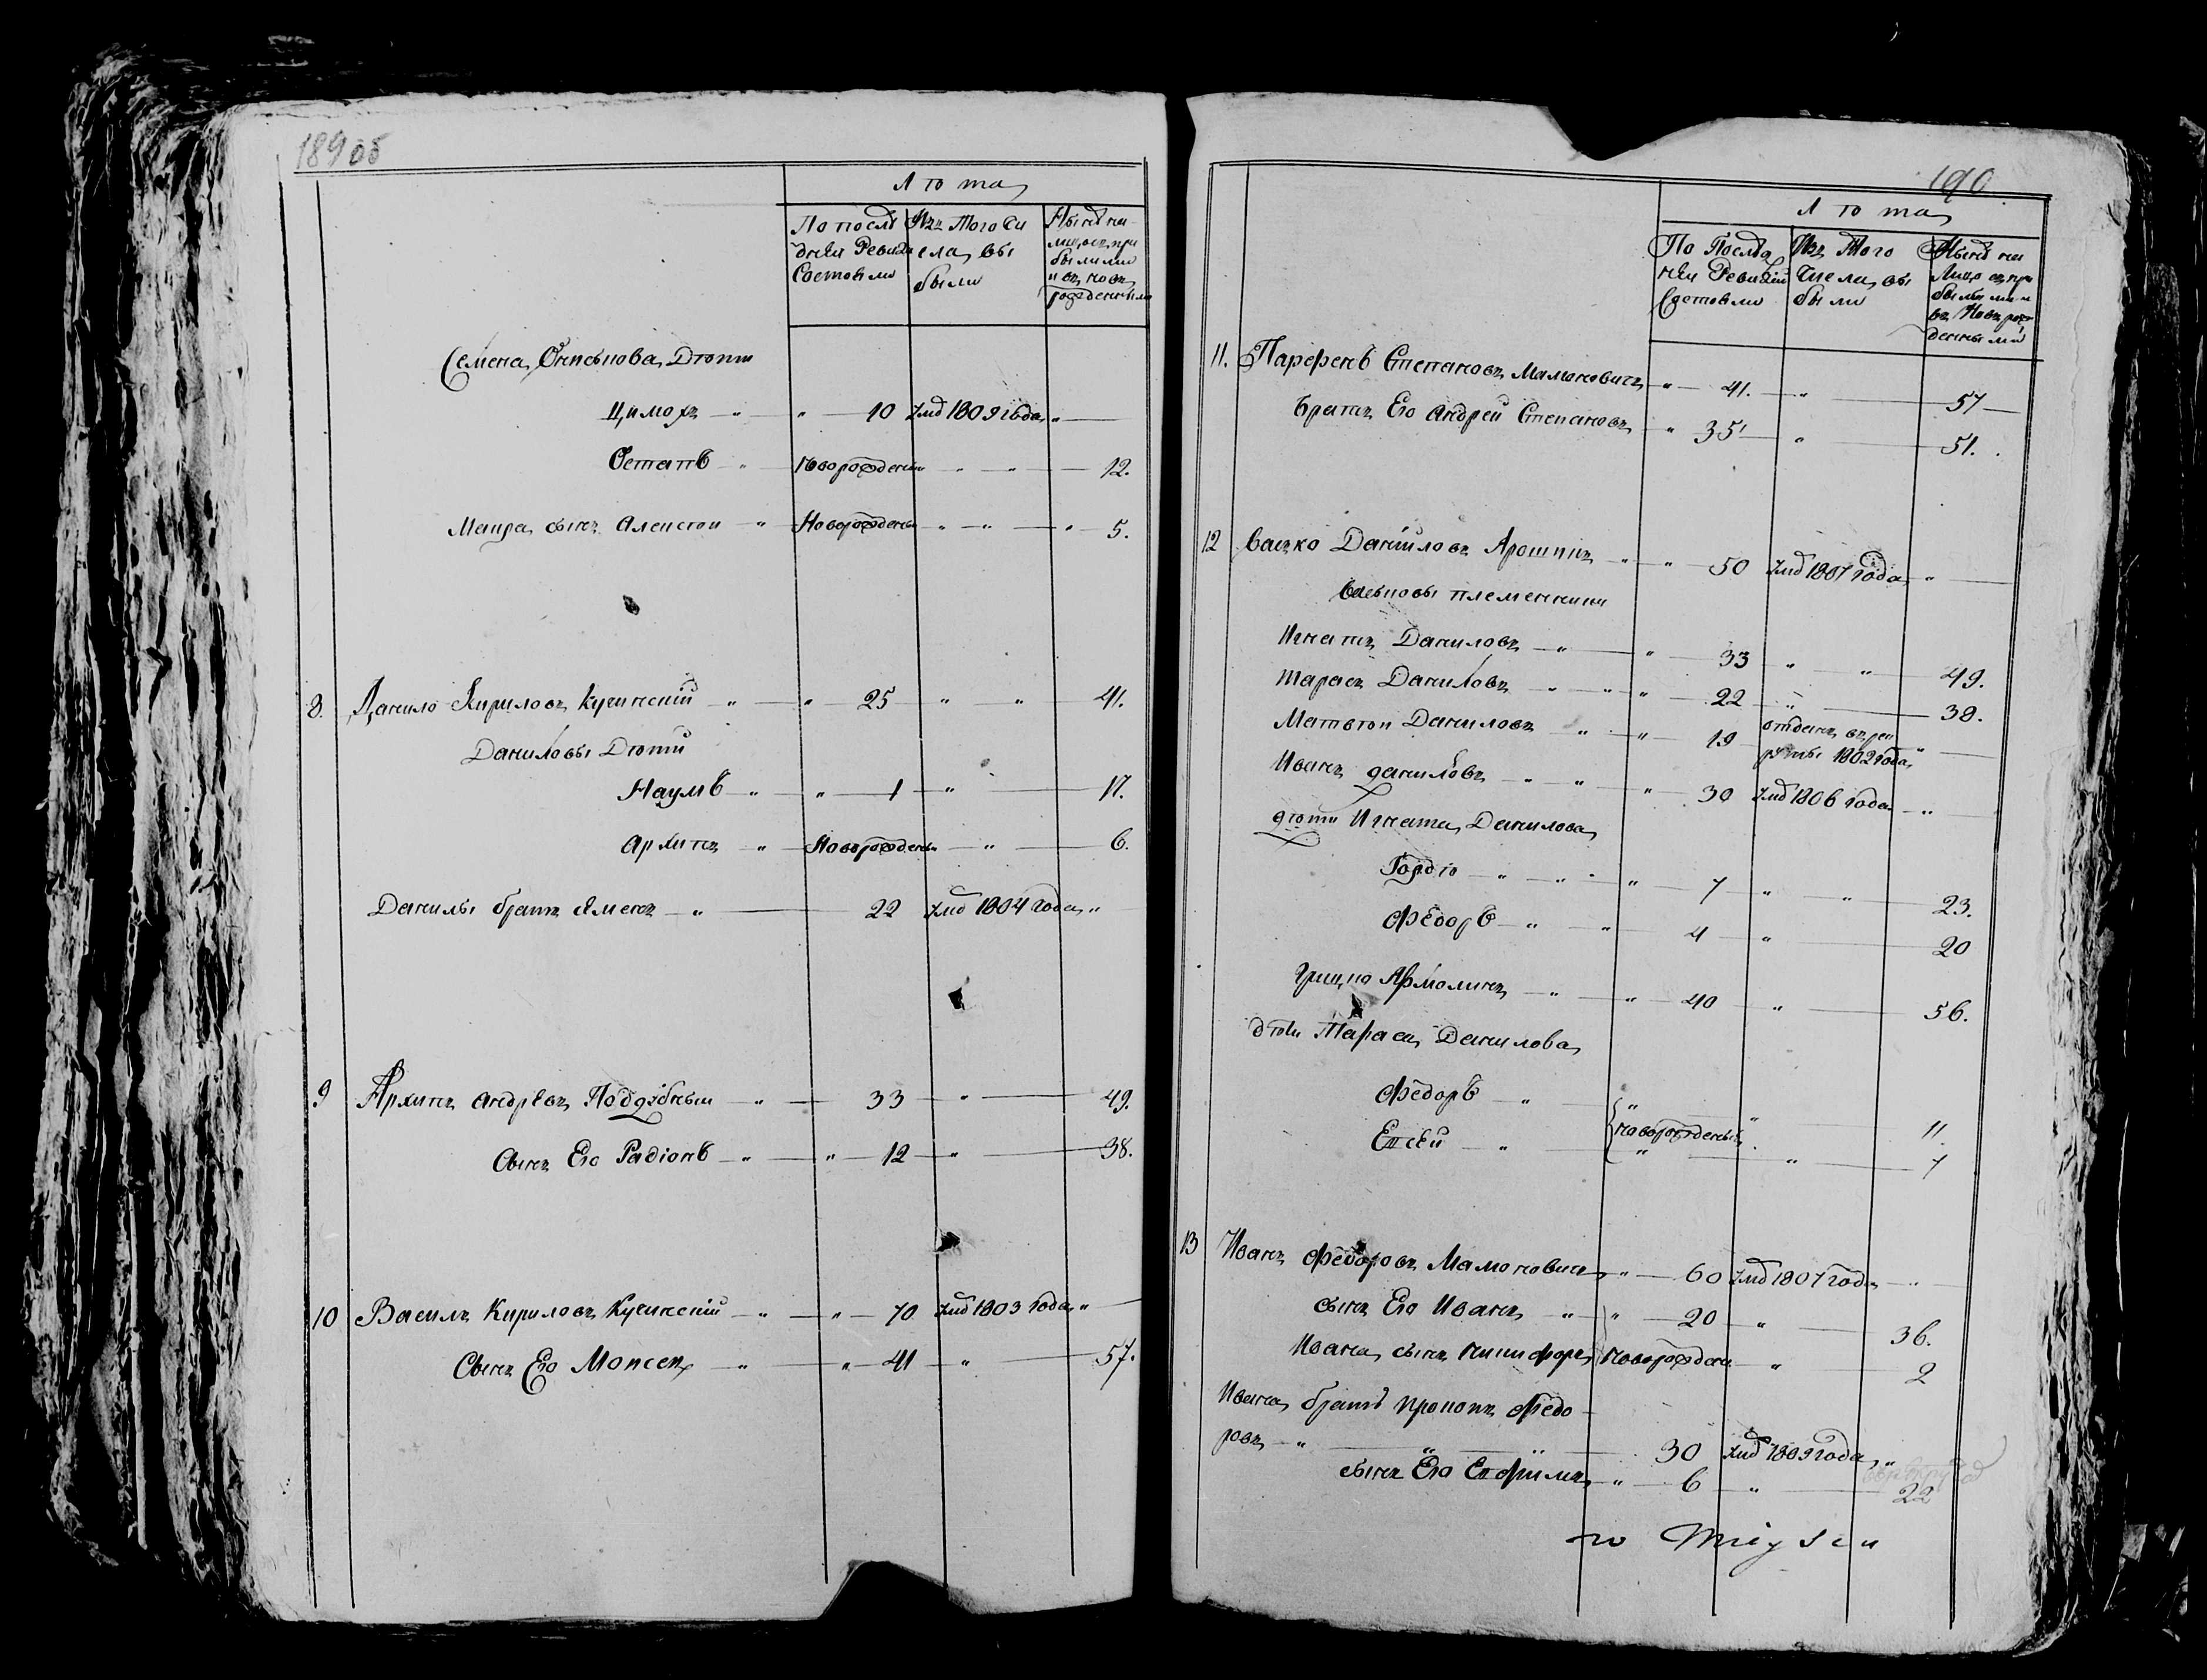 189 об
Лѣта
По послѣ Изъ того чи Нынѣ на
дней Ревизіи сла вы лицо съ при
Состояли были былыми
и съ новъ
рожденными
Семена Осипова Дѣти
Цимохъ — " " — 10 умъ 1809 года "
Остапъ " Новорожденъ " " — 12.
сынъ Алексѣй " Новорожденъ " " " 5.
8. Данило Кириловъ Кучинскій " " 25 " " 41.
Даниловы Дѣти
Наумъ " " — 1 — " — 17.
Архипъ " Новорожденъ — " — 6.
Данилы братъ — " — 22 умъ 1804 года "
9 Архипъ Андреевъ Поддубный " — 33 — " — 49.
Сынъ Его Радіонъ — " — " — 12 — " — 38.
10 Василь Кириловъ Кучинскій — " — " — 70 умъ 1803 года "
Сынъ Его Моисей " — " — 41 — " — 57.
190
Лѣта
По Послѣд Изъ Того Нынѣ на
ней Ревизіи Числа вы Лицо съ при
Состояли были былыми и
съ Новорож
денными
11. Парфенъ Степановъ Мамоновичъ " — 41. — " — 57
братъ Его Андрей Степановъ " 35 — " — 51.
12 Васько Даниловъ Ярошикъ " — " — 50 умъ 1807 года "
Васьковы племенники
Игнатъ Даниловъ — " — " — 33 " " 49.
Тарасъ Даниловъ " " " — 22 " — 38.
Матвѣй Даниловъ " " — 19 отданъ въ рек
руты 1802 года "
Иванъ Даниловъ " " " — 30 умъ 1806 года "
дѣти Игната Данилова
Гордѣй " " " — 7 — " " 23.
Фёдоръ — " " 4 — " — 20
Грицко Ярмолинъ — " " — 40 " — 56.
дѣти Тараса Данилова
Фёдоръ — " " " 11.
новорожденные
Евсей — " " " 7
13 Иванъ Фёдоровъ Мамоновичъ " — 60 умъ 1807 года "
сынъ Его Иванъ " " — 20 — " — 36.
Ивана сынъ Никифоръ новорожденъ " 2
Ивана братъ Прокопъ Фёдо
ровъ — " — " — " 30 умъ 1809 года "
сынъ Его Ефимъ " — 6 — " — 22